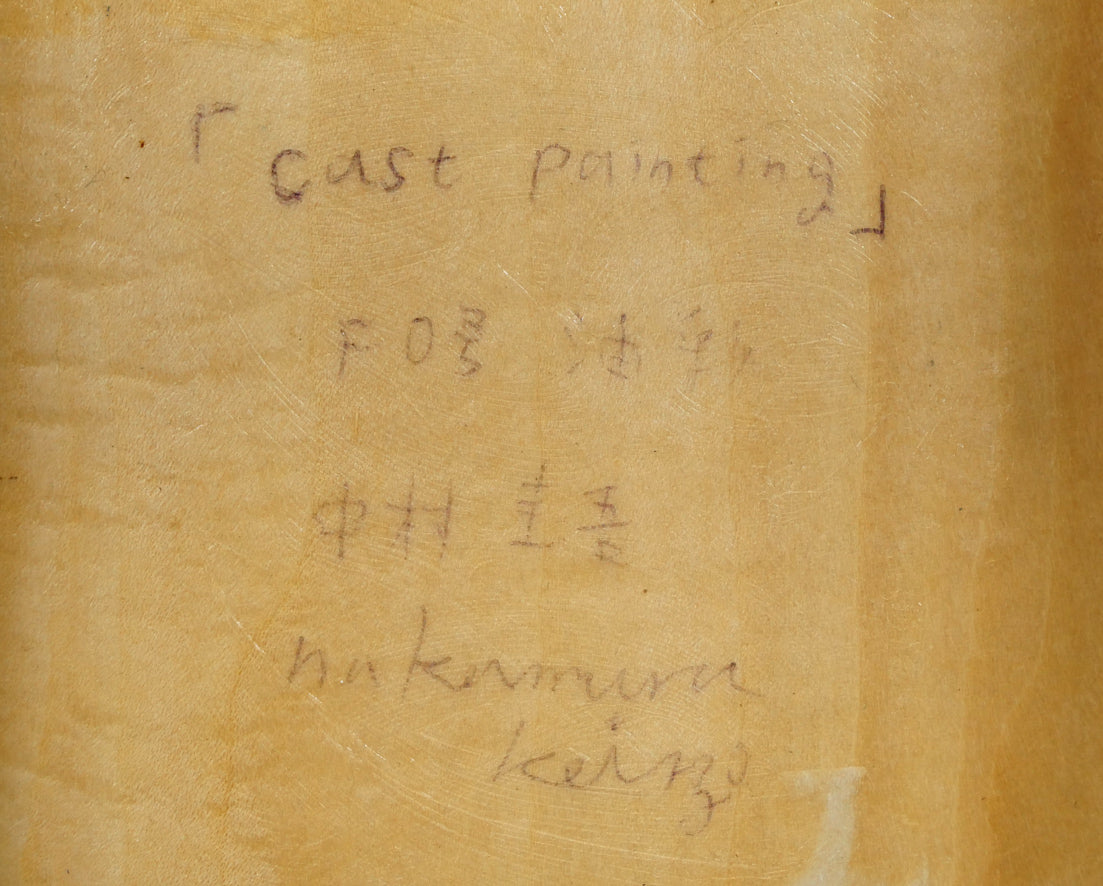 「cast painting」
F0号 油彩
中村 圭吾
nakamura